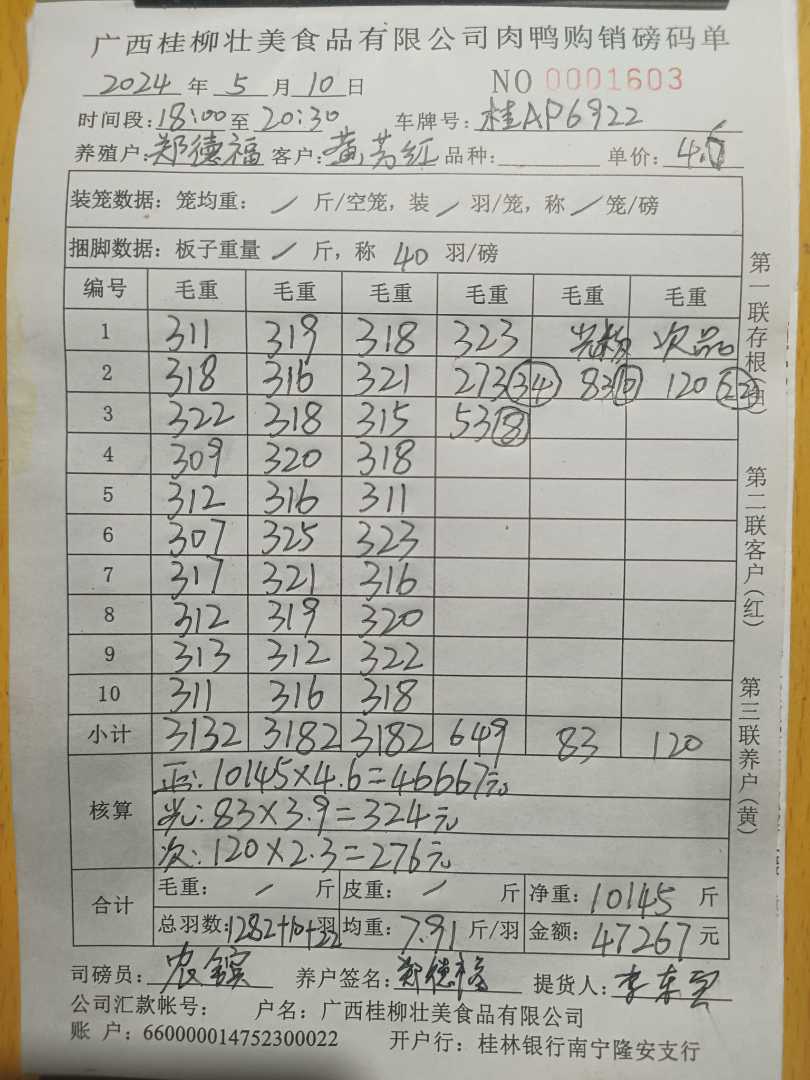 广西桂柳壮美食品有限公司肉鸭购销磅码单
2024 年 5 月 10 日 NO 0001603
时间段: 18:00 至 20:30 车牌号: 桂AP6922
养殖户: 郑德福 客户: 黄芳红 品种: 单价: 4.6
装笼数据: 笼均重: / 斤/空笼, 装 / 羽/笼, 称 / 笼/磅
捆脚数据: 板子重量 / 斤, 称 40 羽/磅
编号 毛重 毛重 毛重 毛重 毛重 毛重
1 311 319 318 323 光粉 次品
2 318 316 321 273 34 83 10 120 22
3 322 318 315 53 8
4 309 320 318
5 312 316 311
6 307 325 323
7 317 321 316
8 312 319 320
9 313 312 322
10 311 316 318
小计 3132 3182 3182 649 83 120
核算 正: 10145×4.6=46667元
光: 83×3.9=324元
次: 120×2.3=276元
合计 毛重: / 斤 皮重: / 斤 净重: 10145 斤
总羽数: 1282+10+22 羽 均重: 7.91 斤/羽 金额: 47267 元
司磅员: 农镔 养户签名: 郑德福 提货人: 李东
公司汇款帐号: 户名: 广西桂柳壮美食品有限公司
账 户: 660000014752300022 开户行: 桂林银行南宁隆安支行
第一联存根(白) 第二联客户(红) 第三联养户(黄)